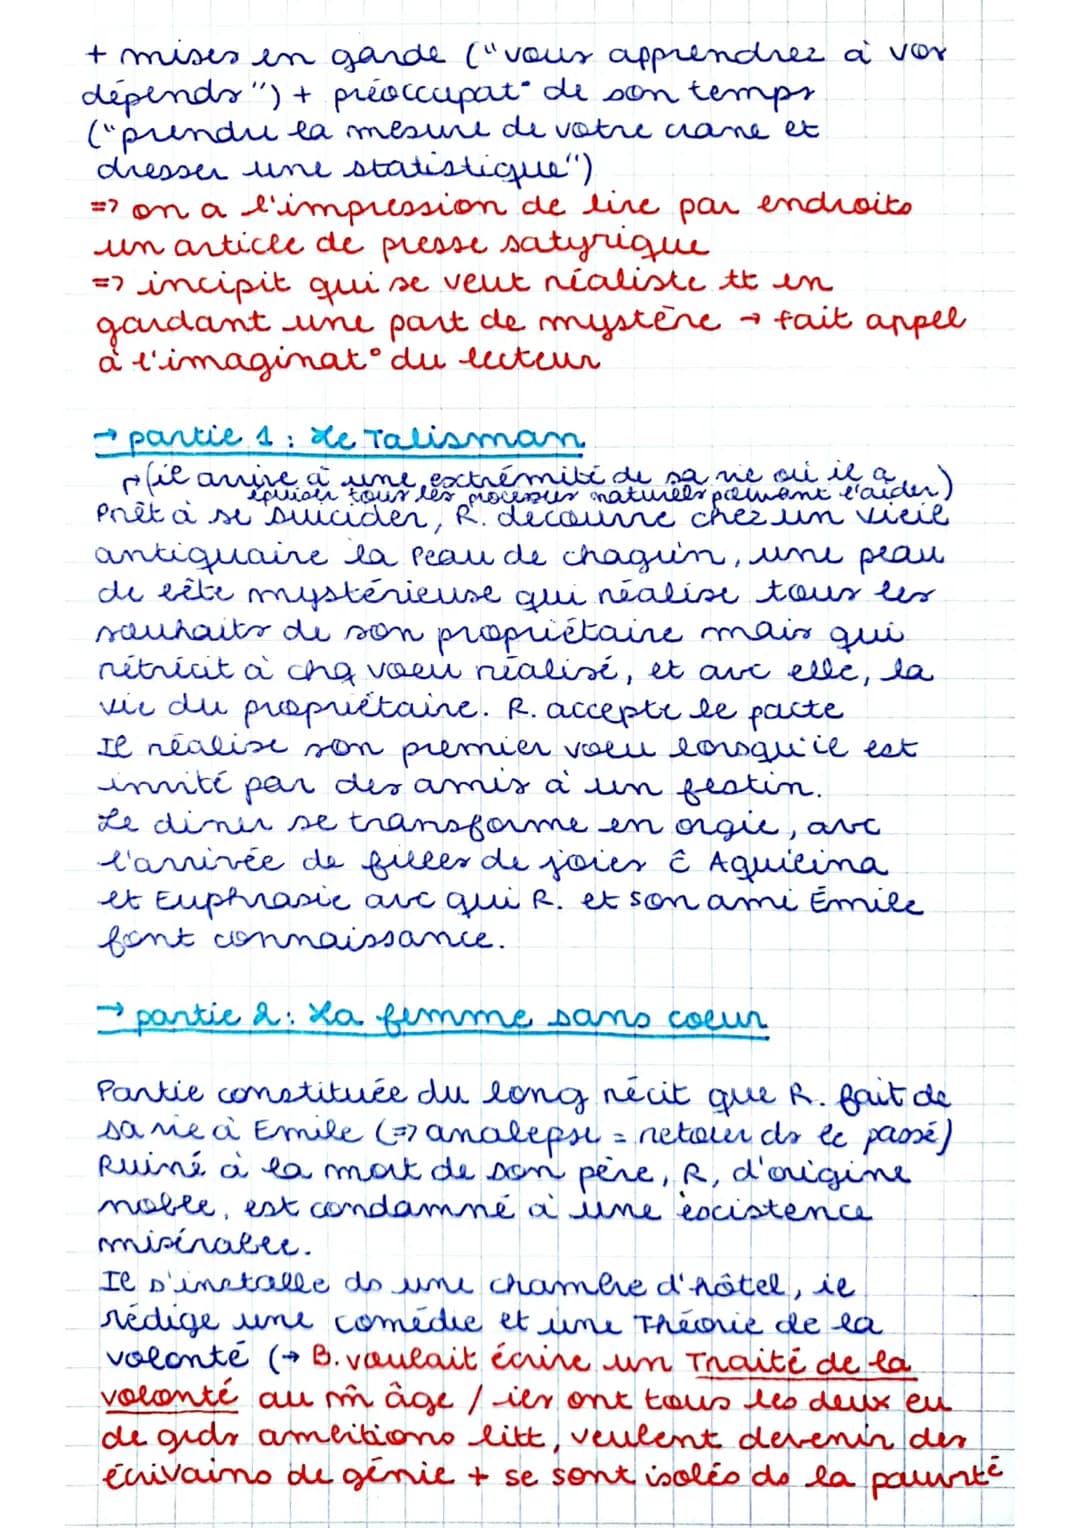 + mises en garde ("vous apprendrez à vos
dépends") + préoccupat° de son temps
("prendre la mesure de votre crane et
dresser une statistique")
=> on a l'impression de lire par endroits
un article de presse satyrique
=> incipit qui se veut réaliste tt en
gardant une part de mystère → fait appel
à l'imaginat° du lecteur
→ partie 1 : Le Talisman
→ (il arrive à une extrémité de sa vie où il a
épuisé tous les processus naturels pouvant l'aider)
Prêt à se suicider, R. découvre chez un vieil
antiquaire la Peau de chagrin, une peau
de bête mystérieuse qui réalise tous les
souhaits de son propriétaire mais qui
rétrécit à chq voeu réalisé, et avc elle, la
vie du propriétaire. R. accepte le pacte
Il réalise son premier voeu lorsqu'il est
invité par des amis à un festin.
Le diner se transforme en orgie, avc
l'arrivée de filles de joies ĉ Aquilina
et Euphrasie avc qui R. et son ami Émile
font connaissance.
→ partie 2 : La femme sans coeur
Partie constituée du long récit que R. fait de
sa vie à Emile (=> analepse = retour ds le passé)
Ruiné à la mort de son père, R, d'origine
noble, est condamné à une existence
misérable.
Il s'installe ds une chambre d'hôtel, il
rédige une comédie et une Théorie de la
volonté (→ B. voulait écrire un Traité de la
volonté au m̂ âge / ils ont tous les deux eu
de grds ambitions litt, veulent devenir des
écrivains de génie + se sont isolés ds la pauvreté